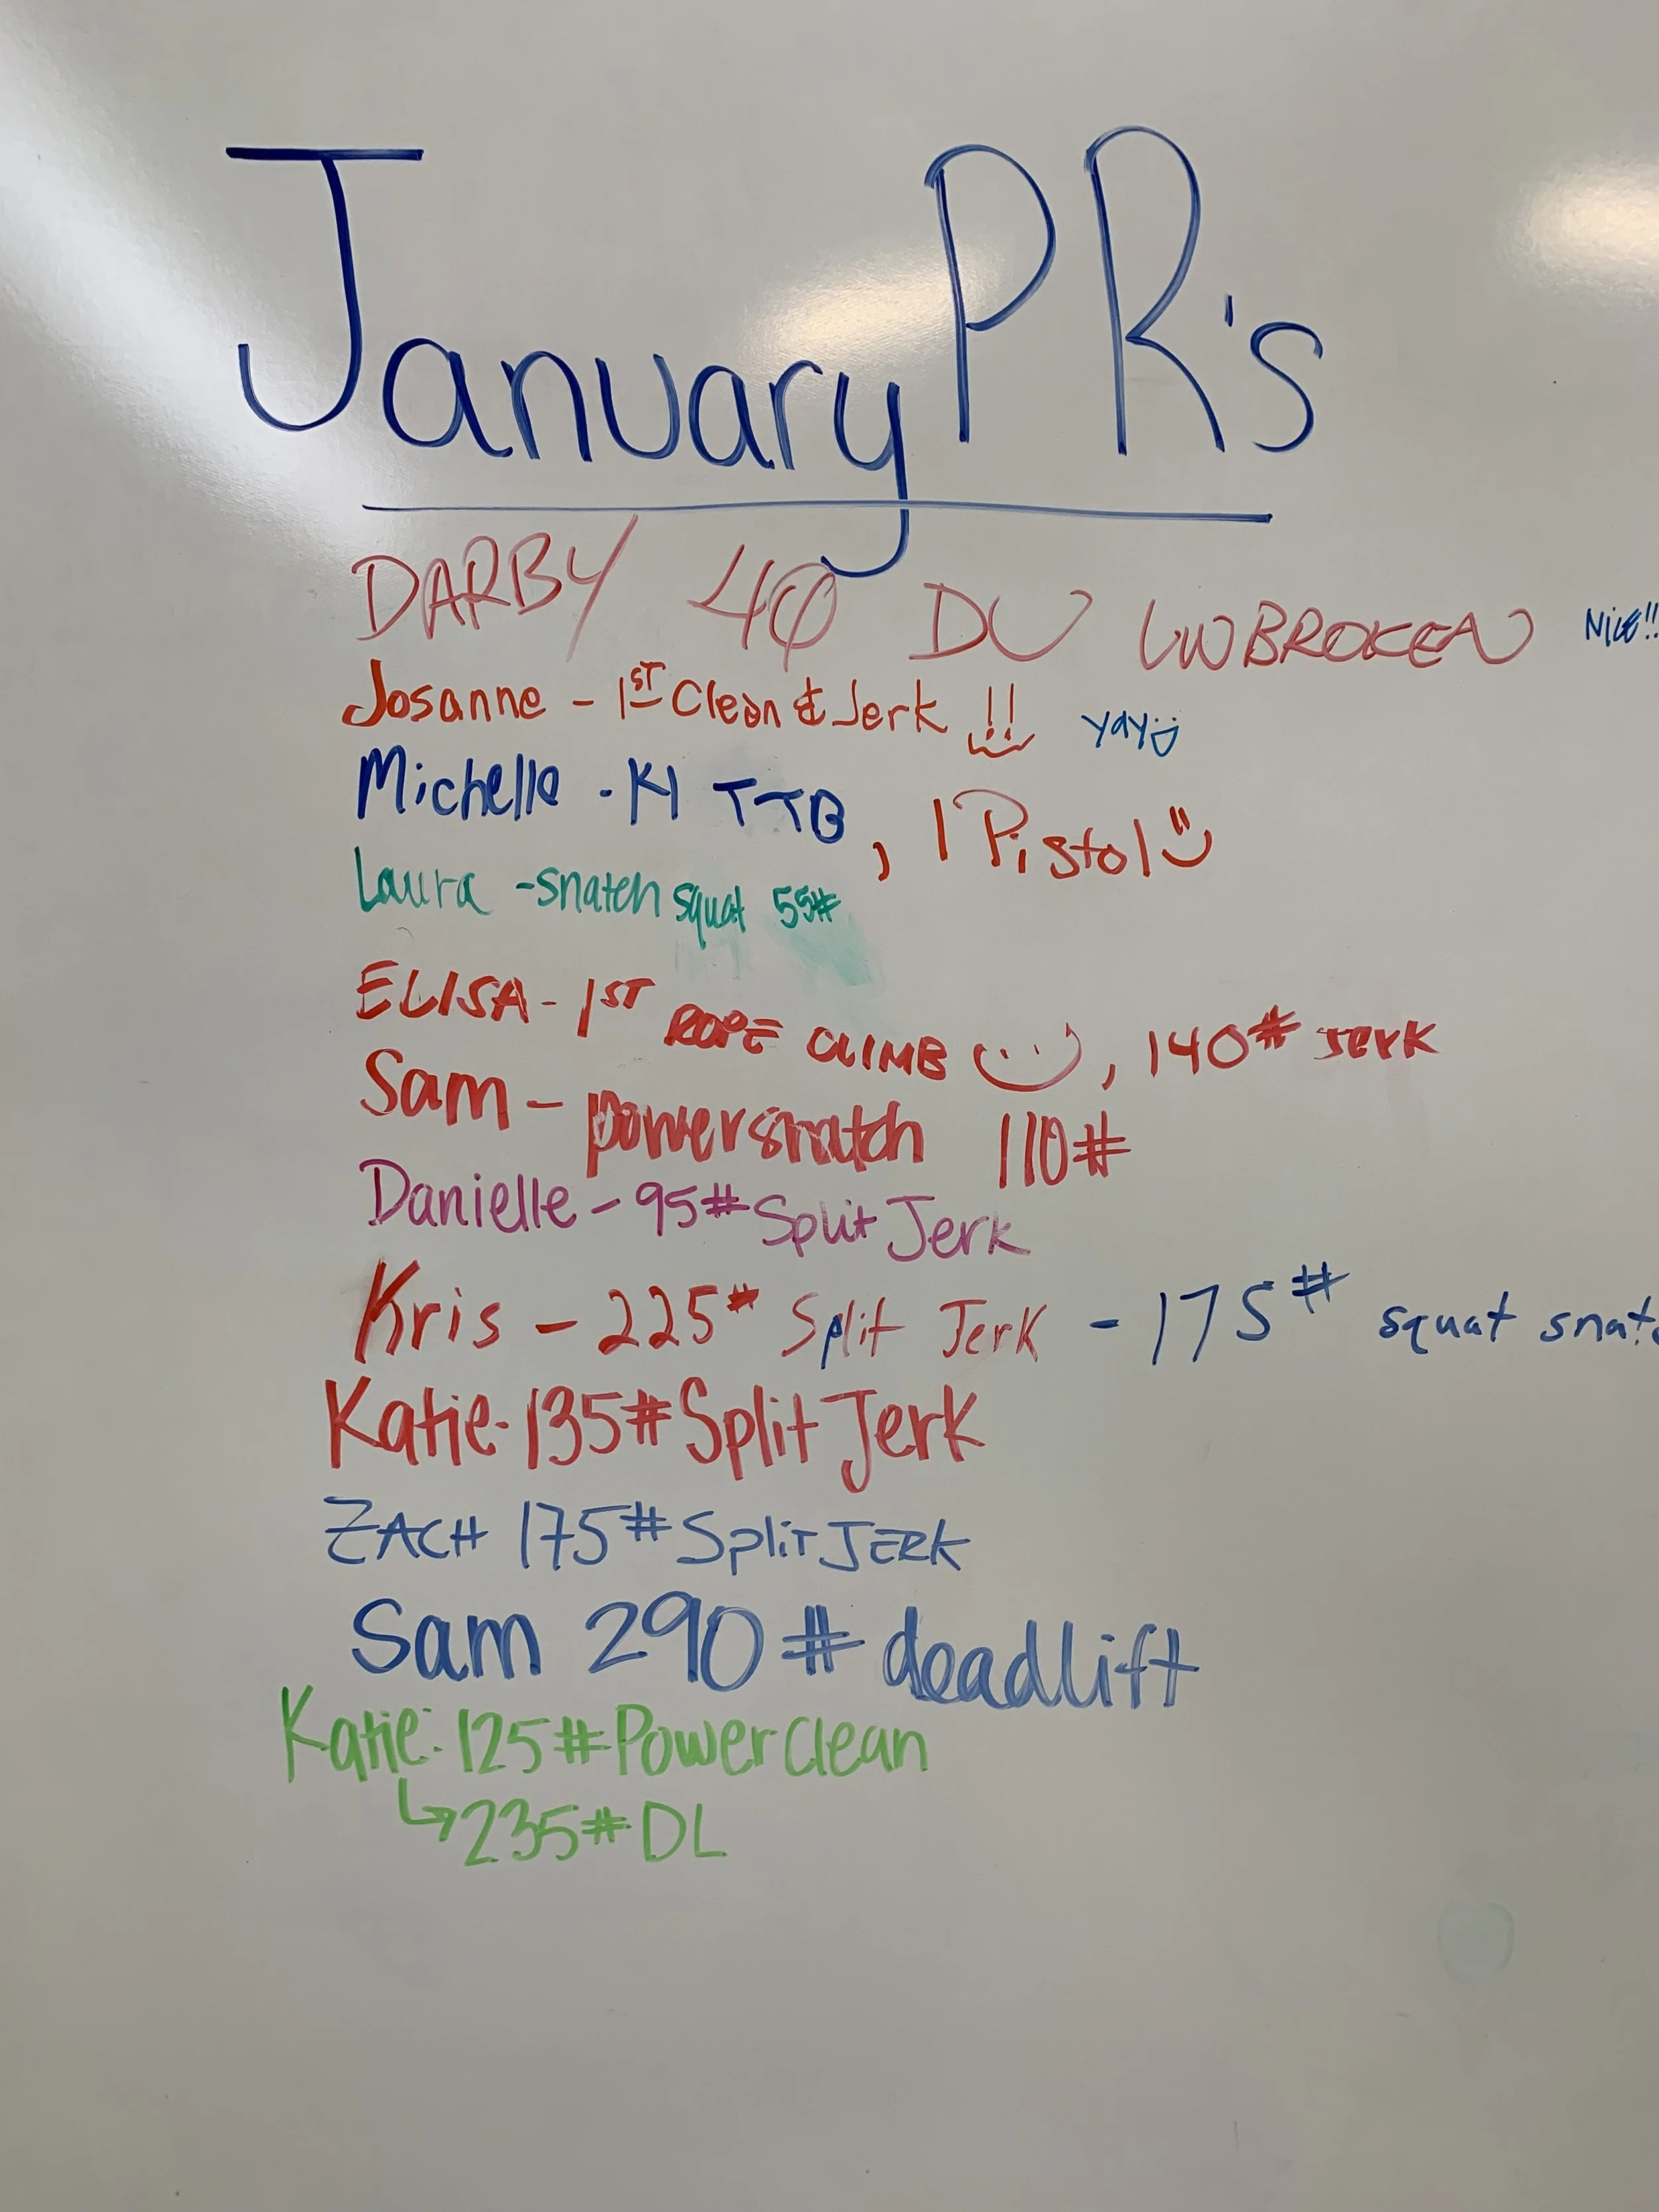 January PR's
DARBY 40 DU UNBROKEN NICE!!
Josanne - 1ST Clean & Jerk !! yay
Michelle - KI TTB, 1 Pistol
Laura - snatch squat 55#
ELISA - 1ST ROPE CLIMB, 140# Jerk
Sam - power snatch 110#
Danielle - 95# Split Jerk
Kris - 225# Split Jerk - 175# squat snatc
Katie - 135# Split Jerk
ZACH 175# Split JERK
Sam 290# deadlift
Katie: 125# Power Clean
↳ 235# DL